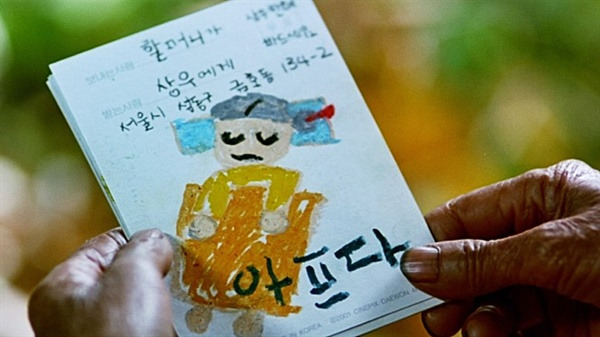 할머니가
보내는사람
상우에게
받는사람
서울시 성동구 금호동 134-2
아프다
IN KOREA